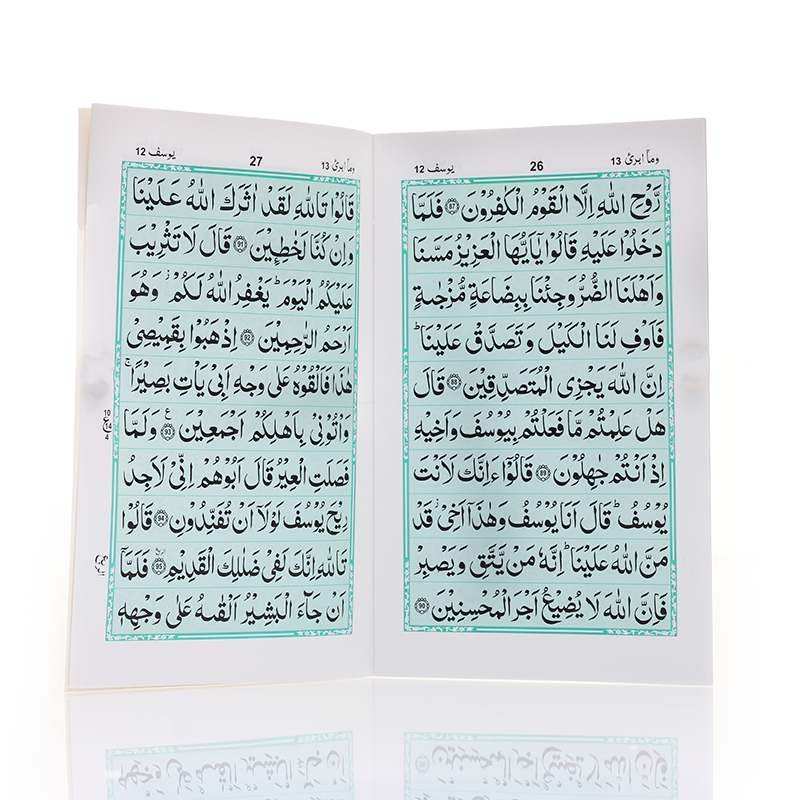 وما ابرئ 13 26 يوسف 12
رَّوْحِ اللّٰهِ اِلَّا الْقَوْمُ الْكٰفِرُوْنَ ۝87 فَلَمَّا
دَخَلُوْا عَلَيْهِ قَالُوْا يٰۤاَيُّهَا الْعَزِيْزُ مَسَّنَا
وَاَهْلَنَا الضُّرُّ وَجِئْنَا بِبِضَاعَةٍ مُّزْجٰىةٍ
فَاَوْفِ لَنَا الْكَيْلَ وَتَصَدَّقْ عَلَيْنَا ؕ
اِنَّ اللّٰهَ يَجْزِي الْمُتَصَدِّقِيْنَ ۝88 قَالَ
هَلْ عَلِمْتُمْ مَّا فَعَلْتُمْ بِيُوْسُفَ وَاَخِيْهِ
اِذْ اَنْتُمْ جٰهِلُوْنَ ۝89 قَالُوْۤا ءَاِنَّكَ لَاَنْتَ
يُوْسُفُ ؕ قَالَ اَنَا يُوْسُفُ وَهٰذَاۤ اَخِيْ ۡ قَدْ
مَنَّ اللّٰهُ عَلَيْنَا ؕ اِنَّهٗ مَنْ يَّتَّقِ وَيَصْبِرْ
فَاِنَّ اللّٰهَ لَا يُضِيْعُ اَجْرَ الْمُحْسِنِيْنَ ۝90
وما ابرئ 13 27 يوسف 12
قَالُوْا تَاللّٰهِ لَقَدْ اٰثَرَكَ اللّٰهُ عَلَيْنَا
وَاِنْ كُنَّا لَخٰطِـِٕيْنَ ۝91 قَالَ لَا تَثْرِيْبَ
عَلَيْكُمُ الْيَوْمَ ؕ يَغْفِرُ اللّٰهُ لَكُمْ ۡ وَهُوَ
اَرْحَمُ الرّٰحِمِيْنَ ۝92 اِذْهَبُوْا بِقَمِيْصِيْ
هٰذَا فَاَلْقُوْهُ عَلٰى وَجْهِ اَبِيْ يَاْتِ بَصِيْرًا ۚ
وَاْتُوْنِيْ بِاَهْلِكُمْ اَجْمَعِيْنَ ۝93 وَلَمَّا
فَصَلَتِ الْعِيْرُ قَالَ اَبُوْهُمْ اِنِّيْ لَاَجِدُ
رِيْحَ يُوْسُفَ لَوْلَاۤ اَنْ تُفَنِّدُوْنِ ۝94 قَالُوْا
تَاللّٰهِ اِنَّكَ لَفِيْ ضَلٰلِكَ الْقَدِيْمِ ۝95 فَلَمَّاۤ
اَنْ جَآءَ الْبَشِيْرُ اَلْقٰىهُ عَلٰى وَجْهِهٖ